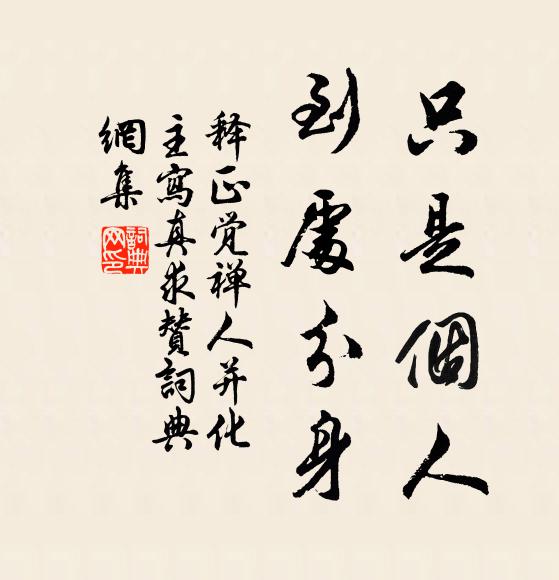 只是個人
到處分身
释正觉禅人并化
主寫真求贊詞典
網集
詞典网印